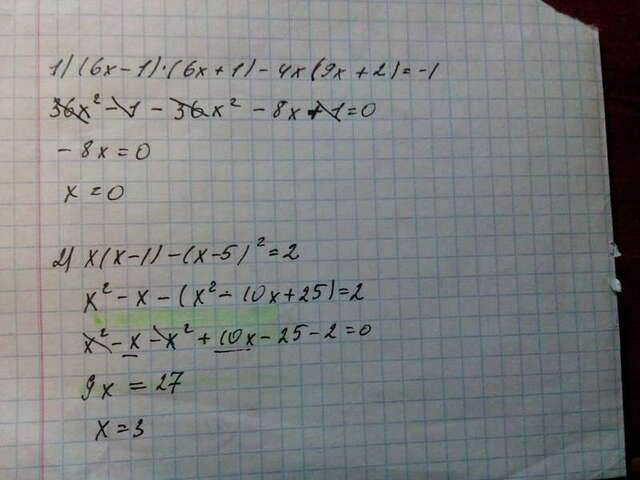 1) (6x-1)·(6x+1)-4x(9x+2)=-1
36x²-1-36x²-8x+1=0
-8x=0
x=0
2) x(x-1)-(x-5)²=2
x²-x-(x²-10x+25)=2
x²-x-x²+10x-25-2=0
9x=27
x=3